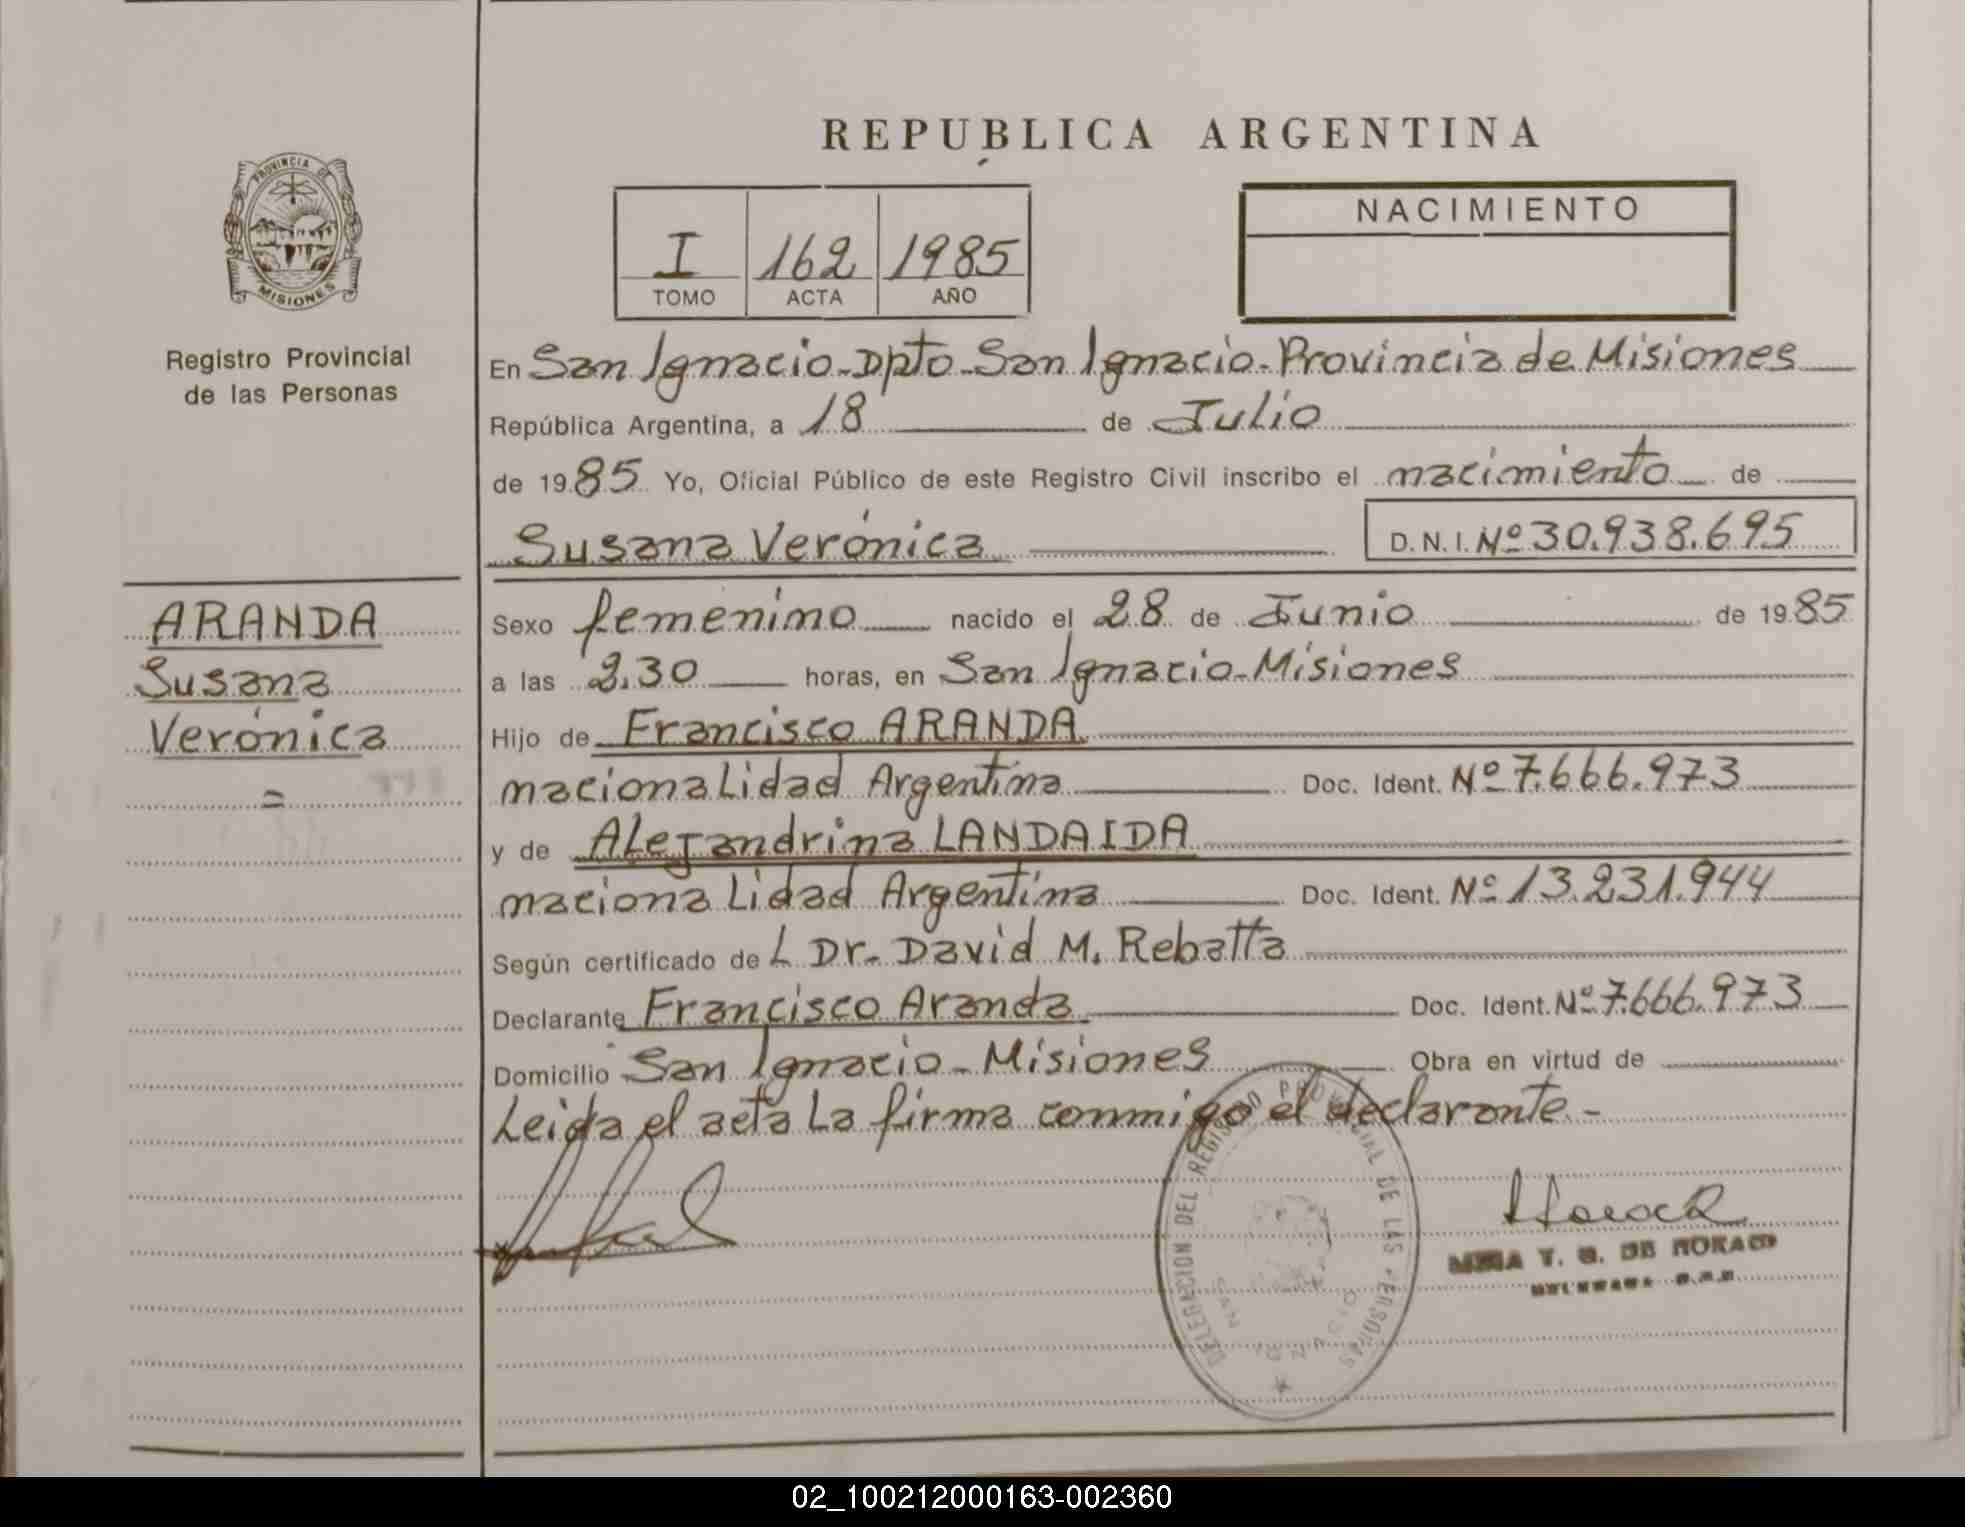 REPUBLICA ARGENTINA
PROVINCIA DE
MISIONES
Registro Provincial
de las Personas
I 162 1985
TOMO ACTA AÑO
NACIMIENTO
En San Ignacio-Dpto-San Ignacio-Provincia de Misiones
República Argentina, a 18 de Julio
de 1985 Yo, Oficial Público de este Registro Civil inscribo el nacimiento de
Susana Verónica D.N.I. Nº 30.938.695
ARANDA
Susana
Verónica
=
Sexo femenino nacido el 28 de Junio de 1985
a las 2.30 horas, en San Ignacio-Misiones
Hijo de Francisco ARANDA
nacionalidad Argentina Doc. Ident. Nº 7.666.973
y de Alejandrina LANDAIDA
nacionalidad Argentina Doc. Ident. Nº 13.231.944
Según certificado de L Dr. David M. Rebatta
Declarante Francisco Aranda Doc. Ident. Nº 7.666.973
Domicilio San Ignacio-Misiones Obra en virtud de
Leida el acta La firma conmigo el declarante.-
DELEGACION DEL REGISTRO PROVINCIAL DE LAS PERSONAS
SAN IGNACIO
T. G. DE
02_100212000163-002360